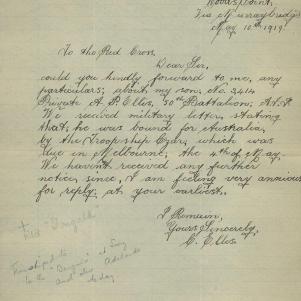 Woods Point,
Via Murraybridge
May 10th 1919
To the Red Cross,
Dear Sir,
could you kindly forward to me, any
particulars, about, my son, No. 3414
Private A. P. Ellis, 50th Battalion, A.I.F.
We recived military letter, stating
that, he was bound for Australia,
by the Troopship Czar, which was
due in Melbourne, the 4th of May.
We havent received any further
notice, since, I am feeling very anxious
for reply, at your earliest.
I Remain,
Yours Sincerely,
C. Ellis.
to the
at
and
Adelaide
today